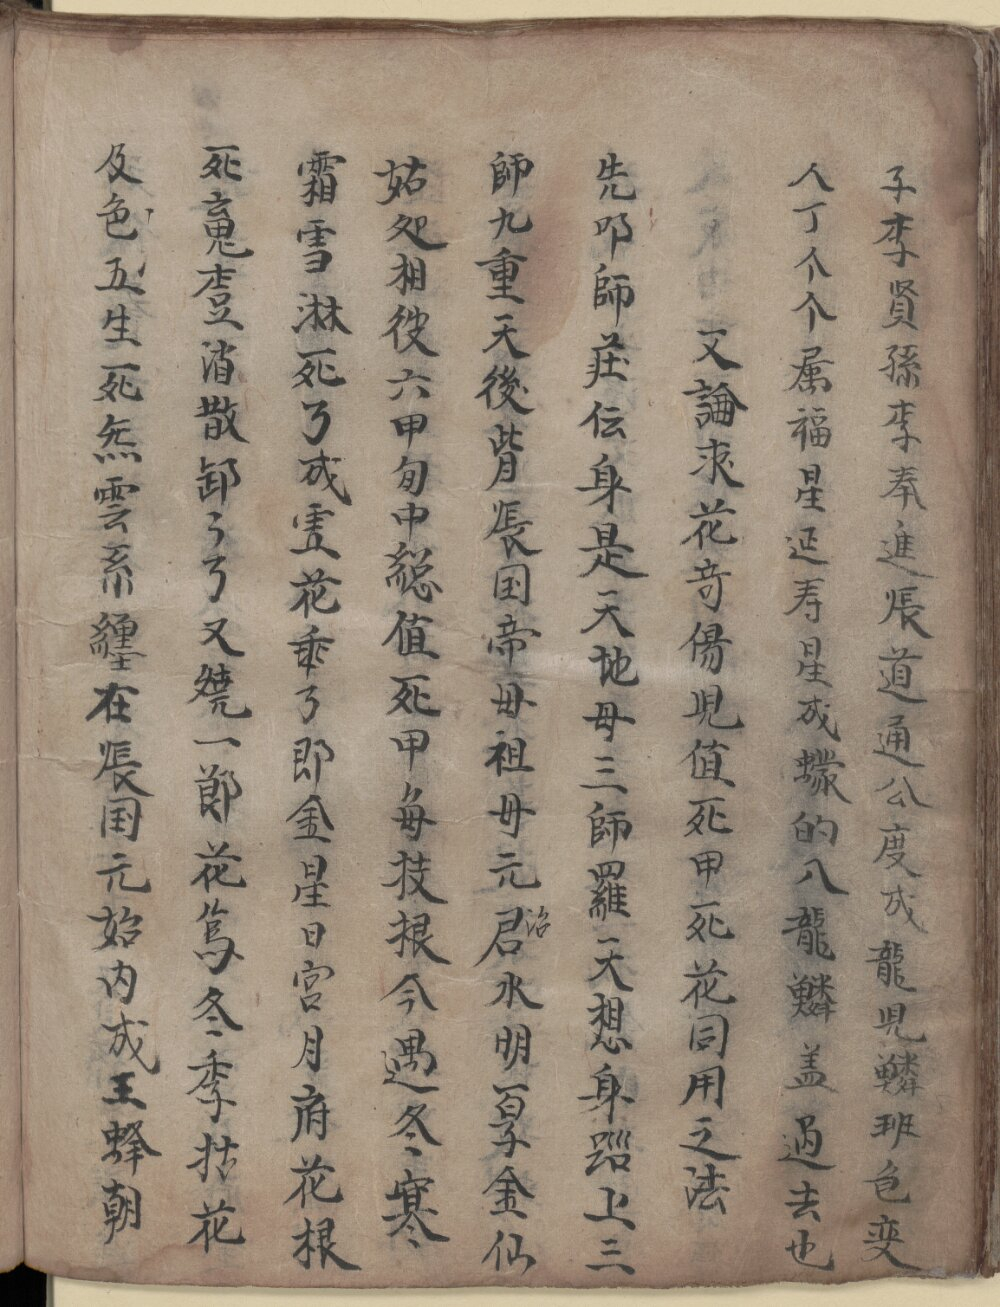 子李贤孫李奉進張道通公度成龍児鱗班色变
人丁个个属福星延寿星成蠓的八龍鱗盖过去也
又論求花奇傷児值死甲死花同用之法
先叩師師莊伝身是天地母三師羅天想身踏上三
師九重天後背張国帝母祖母元君治水明皇金仙
姑処相彼六甲旬中總值死甲每技根今遇冬寒
霜雪淋死了成花乖了即金星日宮月府花根
死消散卸了了又一鄭花篤冬季枯花
及色五生死炁雲系纏在張国元始内成王蜂朝